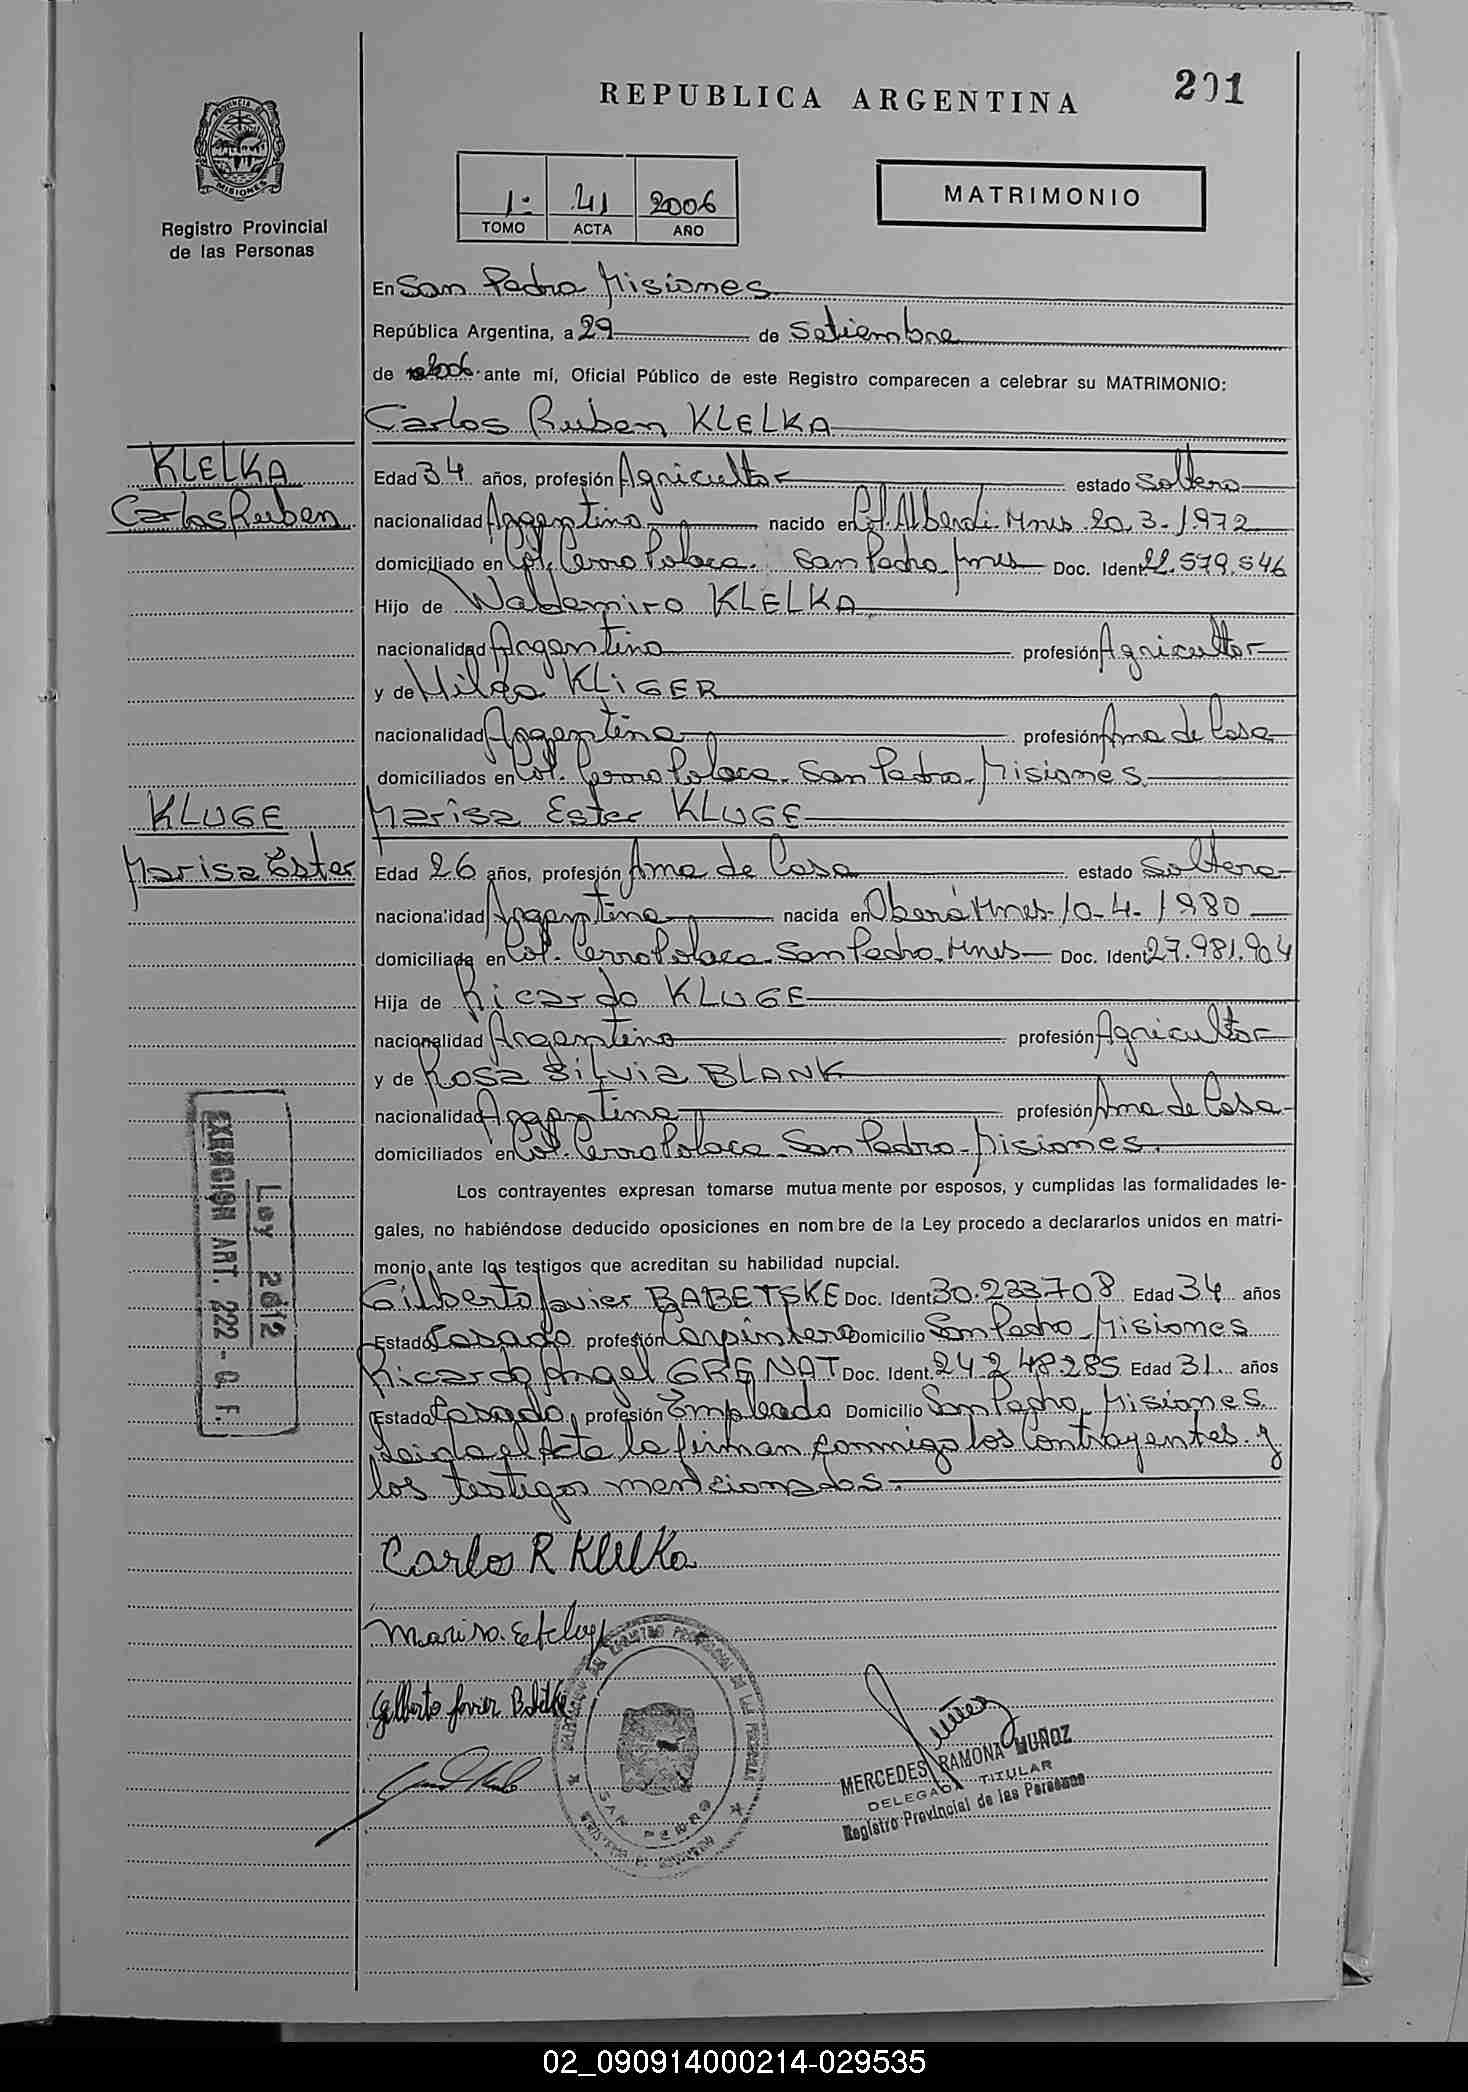 REPUBLICA ARGENTINA
201
PROVINCIA DE
MISIONES
Registro Provincial
de las Personas
1: 41 2006
TOMO ACTA AÑO
MATRIMONIO
En San Pedro Misiones
República Argentina, a 29 de Setiembre
de 2006 ante mí, Oficial Público de este Registro comparecen a celebrar su MATRIMONIO:
Carlos Ruben KLELKA
KLELKA
Carlos Ruben
Edad 34 años, profesión Agricultor estado Soltero
nacionalidad Argentino nacido en Col. Alberdi. Mnes 20.3-1972
domiciliado en Col. Cerro Polaco. San Pedro Mnes Doc. Ident. 22.579.546
Hijo de Waldemiro KLELKA
nacionalidad Argentino profesión Agricultor
y de Hilda KLiGER
nacionalidad Argentina profesión Ama de Casa
domiciliados en Col. Cerro Polaco. San Pedro. Misiones
KLUGE
Marisa Ester
Marisa Ester KLUGE
Edad 26 años, profesión Ama de Casa estado Soltera
nacionalidad Argentina nacida en Oberá Mnes 10-4-1980
domiciliada en Col. Cerro Polaco. San Pedro. Mnes Doc. Ident 27.981.904
Hija de Ricardo KLUGE
nacionalidad Argentino profesión Agricultor
y de Rosa Silvia BLANK
nacionalidad Argentina profesión Ama de Casa
domiciliados en Col. Cerro Polaco San Pedro Misiones.
Los contrayentes expresan tomarse mutua mente por esposos, y cumplidas las formalidades le-
gales, no habiéndose deducido oposiciones en nom bre de la Ley procedo a declararlos unidos en matri-
monio ante los testigos que acreditan su habilidad nupcial.
Gilberto Javier BABETSKE Doc. Ident 30.233708 Edad 34 años
Estado Casado profesión Carpintero Domicilio San Pedro Misiones
Ricardo Angel GRENAT Doc. Ident. 24248285 Edad 31 años
Estado Casado profesión Empleado Domicilio San Pedro Misiones
Leida el Acta la firman conmigo los Contrayentes y
los testigos mencionados.
Ley 2612
EXENCION ART. 222 - C. F.
Carlos R Klelka
Marisa
Gilberto Javier
SAN PEDRO
MERCEDES RAMONA MUÑOZ
DELEGADA TITULAR
Registro Provincial de las Personas
02_090914000214-029535